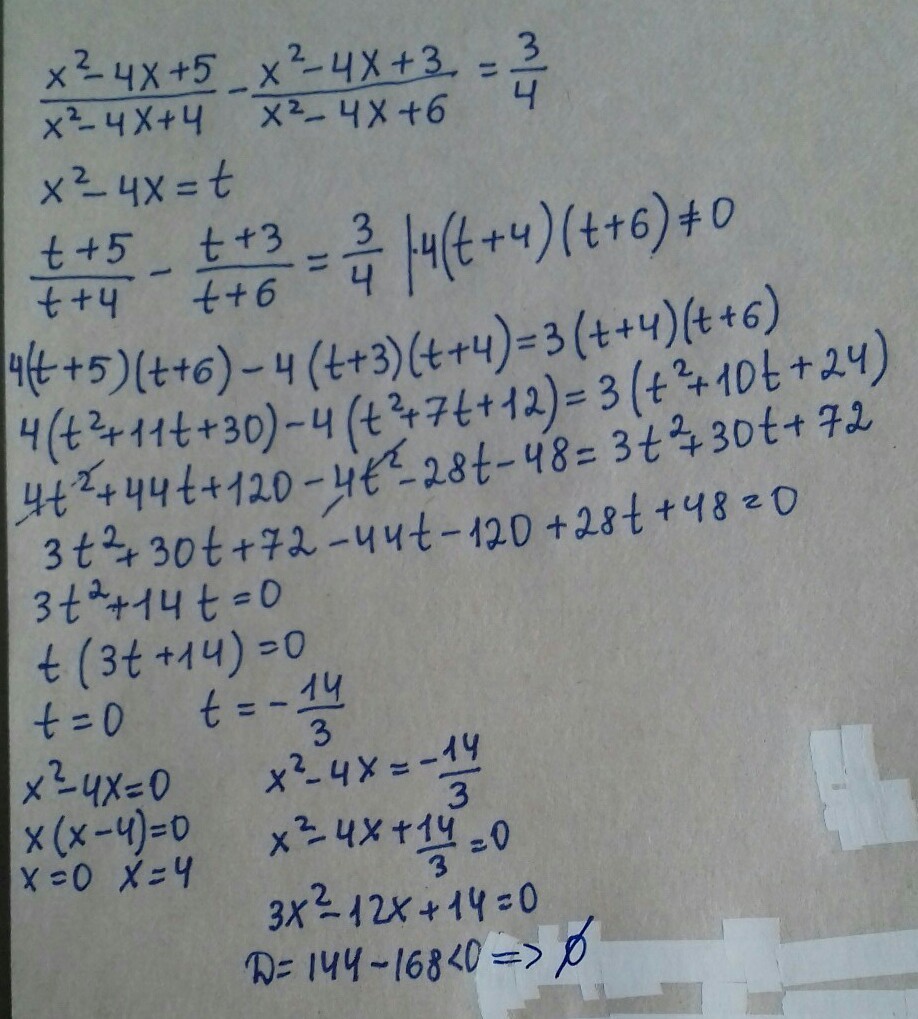 (x²-4x+5)/(x²-4x+4) - (x²-4x+3)/(x²-4x+6) = 3/4
x²-4x=t
(t+5)/(t+4) - (t+3)/(t+6) = 3/4 |·4(t+4)(t+6)≠0
4(t+5)(t+6)-4(t+3)(t+4)=3(t+4)(t+6)
4(t²+11t+30)-4(t²+7t+12)=3(t²+10t+24)
4t²+44t+120-4t²-28t-48=3t²+30t+72
3t²+30t+72-44t-120+28t+48=0
3t²+14t=0
t(3t+14)=0
t=0 t=-14/3
x²-4x=0 x²-4x=-14/3
x(x-4)=0 x²-4x+14/3=0
x=0 x=4
3x²-12x+14=0
D=144-168<0=>∅